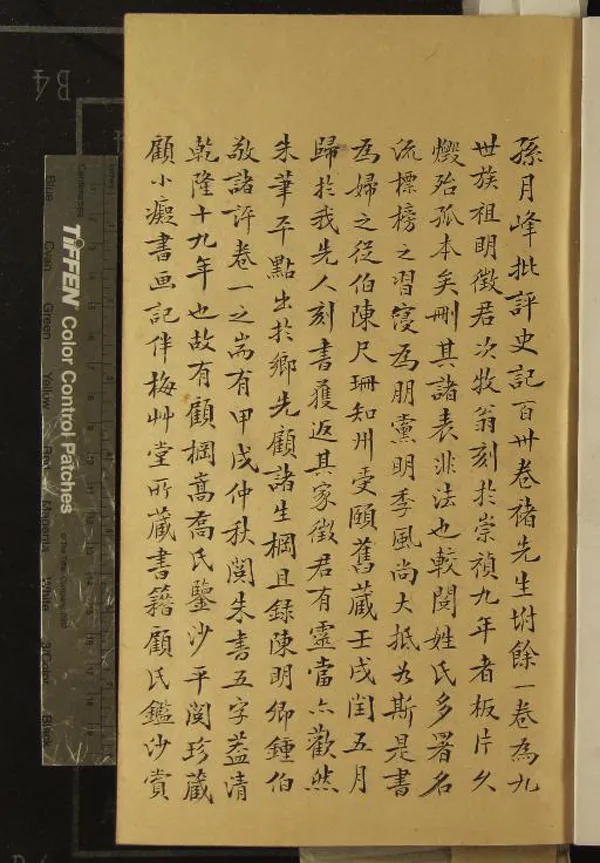 孫月峰批評史記百卅卷褚先生坿餘一卷為九
世族祖明徵君次牧翁刻於崇禎九年者板片久
燬殆孤本矣刪其諸表非法也較閱姓氏多署名
流標榜之習寖為朋黨明季風尚大抵如斯是書
為婦之從伯陳尺珊知州受頤舊藏壬戌閏五月
歸於我先人刻書獲返其家徵君有靈當亦歡然
朱筆平點出於鄉先顧諸生棡且錄陳明卿鍾伯
敬諸評卷一之耑有甲戌仲秋閱朱書五字蓋清
乾隆十九年也故有顧棡嵩喬氏鑒沙平閱珍藏
顧小癡書画記伴梅艸堂所藏書籍顧氏鑑沙賞
TIFFEN Color Control Patches
Blue Cyan Green Yellow Red Magenta White 3/Color Black
B4